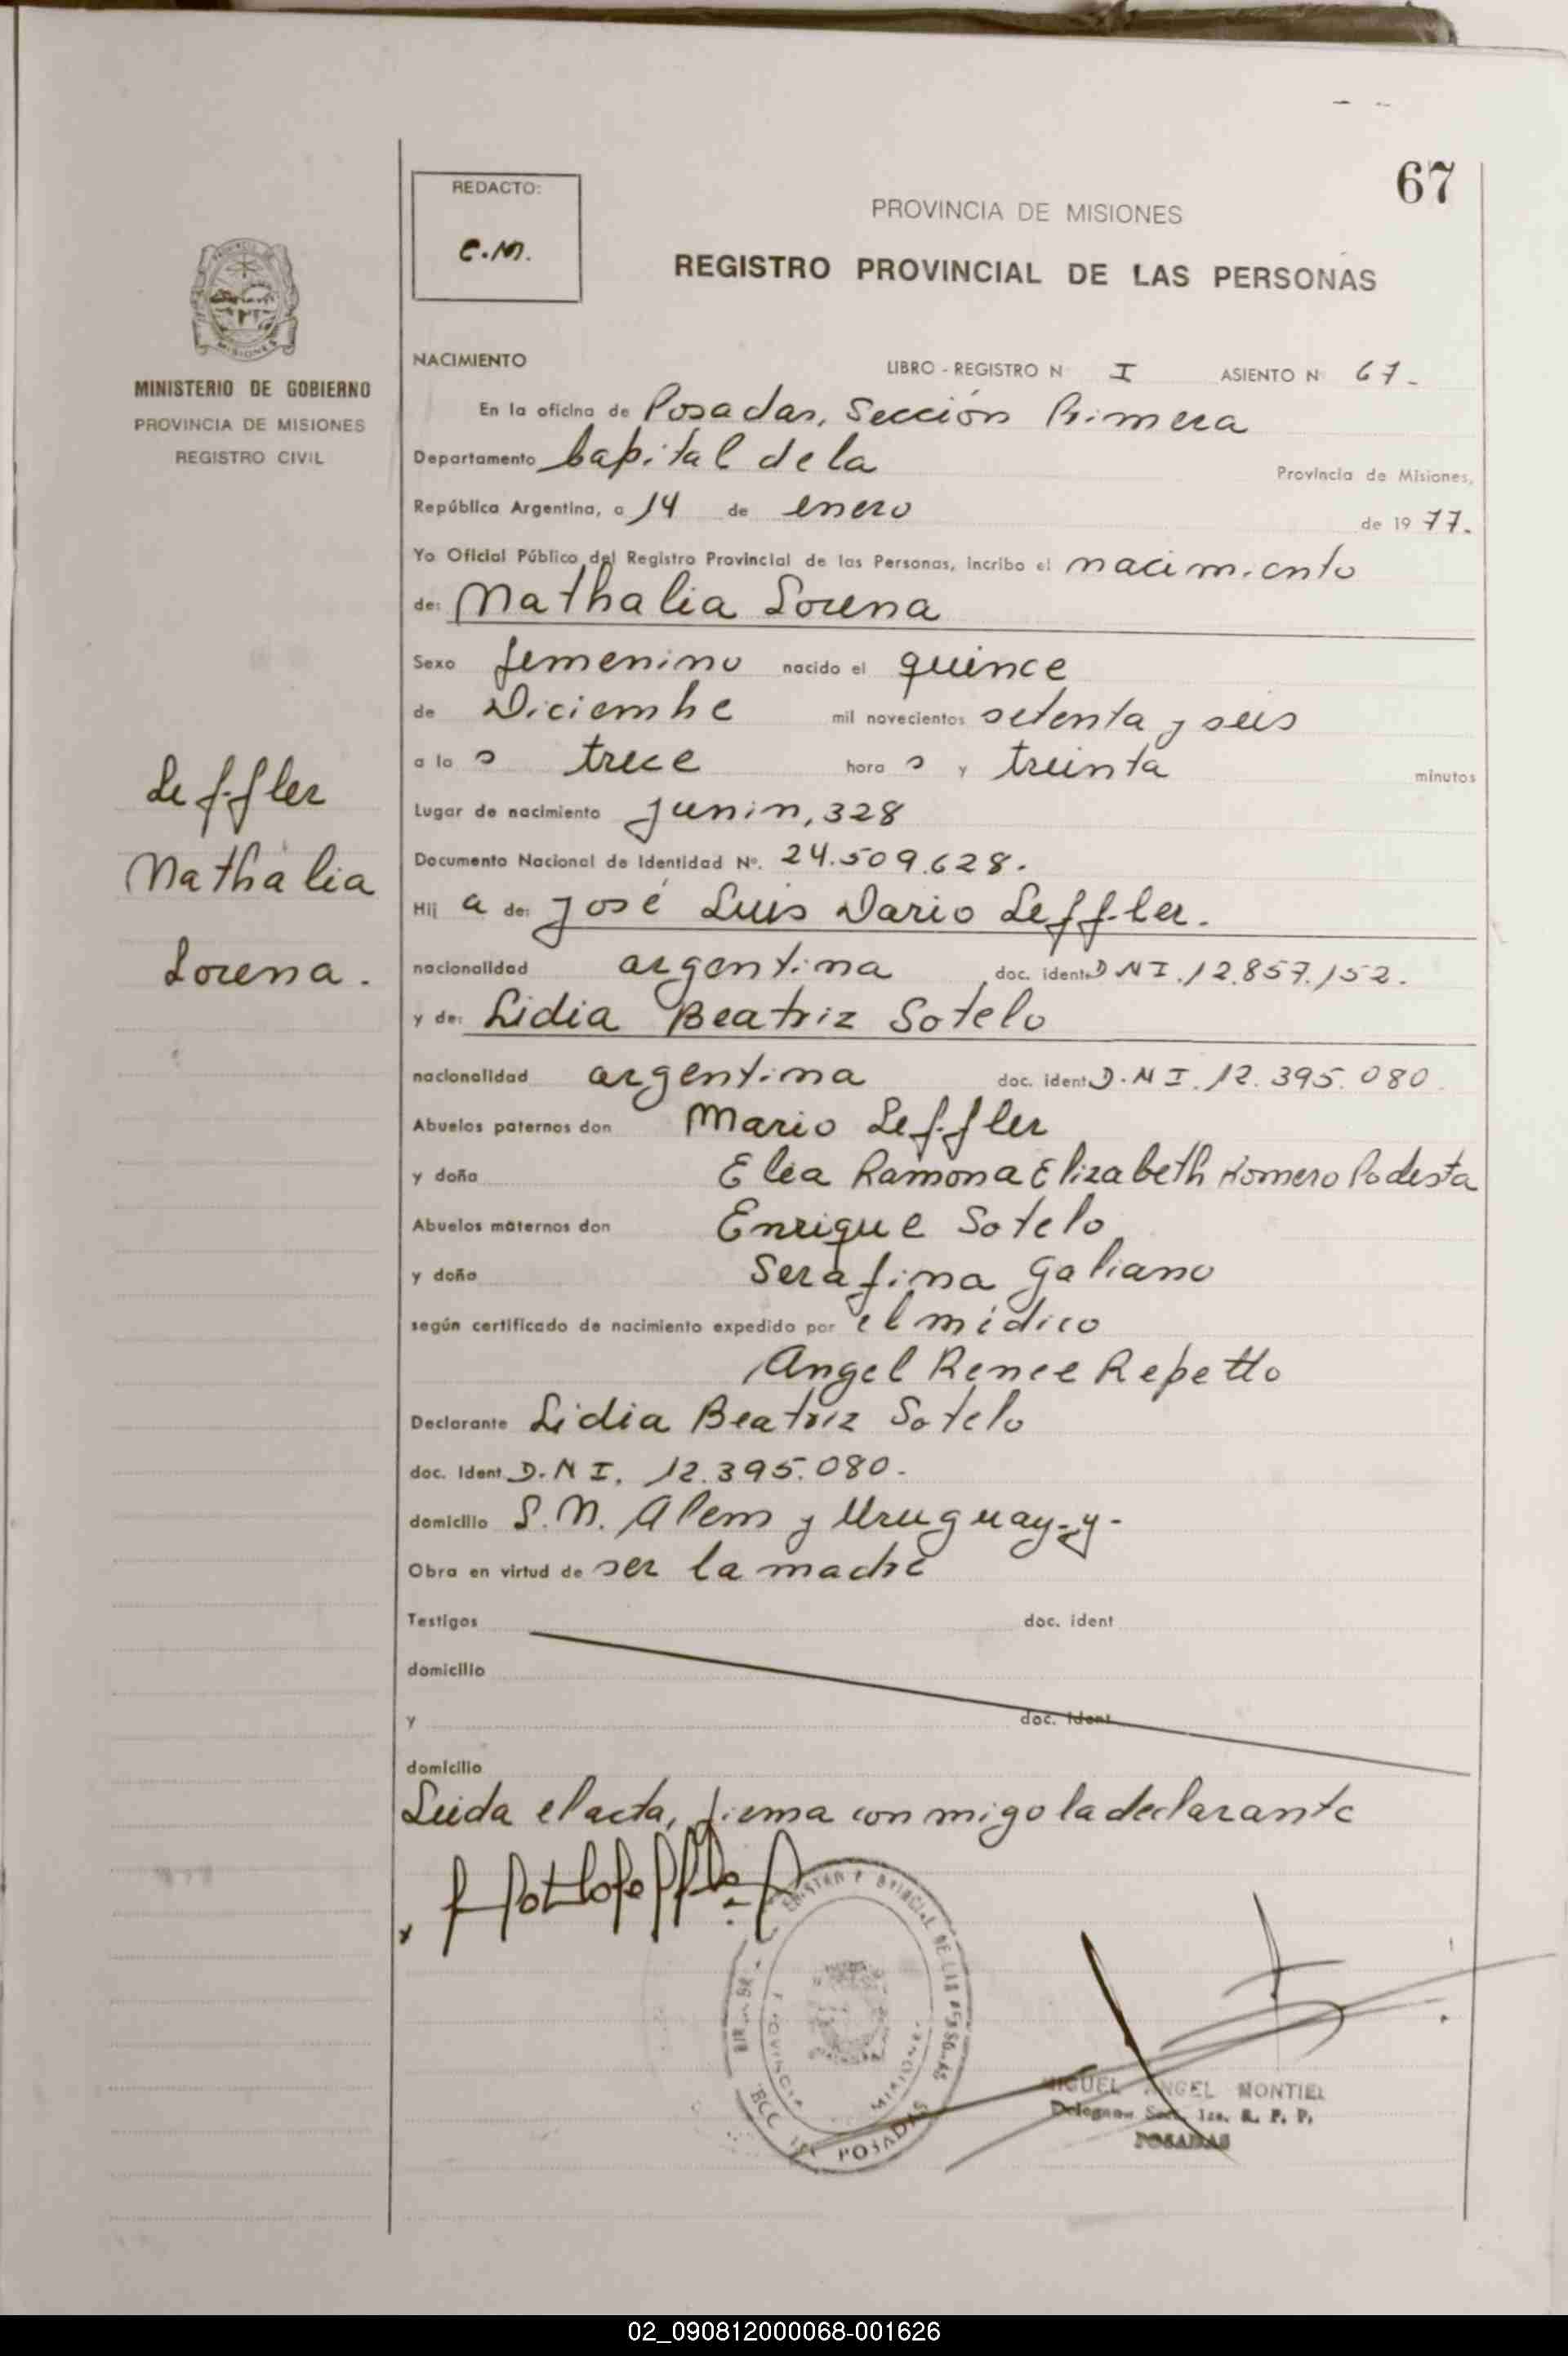 67
REDACTO:
C.M.
PROVINCIA DE MISIONES
REGISTRO PROVINCIAL DE LAS PERSONAS
MISIONES
MINISTERIO DE GOBIERNO
PROVINCIA DE MISIONES
REGISTRO CIVIL
Leffler
Nathalia
Lorena.
NACIMIENTO LIBRO - REGISTRO N I ASIENTO N 67-
En la oficina de Posadas, Sección Primera
Departamento Capital de la Provincia de Misiones,
República Argentina, a 14 de enero de 1977.
Yo Oficial Público del Registro Provincial de las Personas, incribo el nacimiento
de: Nathalia Lorena
Sexo femenino nacido el quince
de Diciembre mil novecientos setenta y seis
a la s trece hora s y treinta minutos
Lugar de nacimiento Junin, 328
Documento Nacional de Identidad Nº. 24.509.628.
Hij a de: José Luis Dario Leffler.
nacionalidad argentina doc. ident. D N I. 12.857.152.
y de: Lidia Beatriz Sotelo
nacionalidad argentina doc. ident. D. N I. 12.395.080.
Abuelos paternos don Mario Leffler
y doña Elea Ramona Elizabeth Romero Podesta
Abuelos maternos don Enrique Sotelo
y doña Serafina Galiano
según certificado de nacimiento expedido por el médico
Angel Renee Repetto
Declarante Lidia Beatriz Sotelo
doc. Ident. D. N I. 12.395.080.
domicilio L.N. Alem y Uruguay-y-
Obra en virtud de ser la madre
Testigos doc. ident
domicilio
y doc. ident
domicilio
Leida el acta, firma conmigo la declarante
POSADAS
MIGUEL ANGEL MONTIEL
Sec. 1ra. R. P. P.
POSADAS
02_090812000068-001626